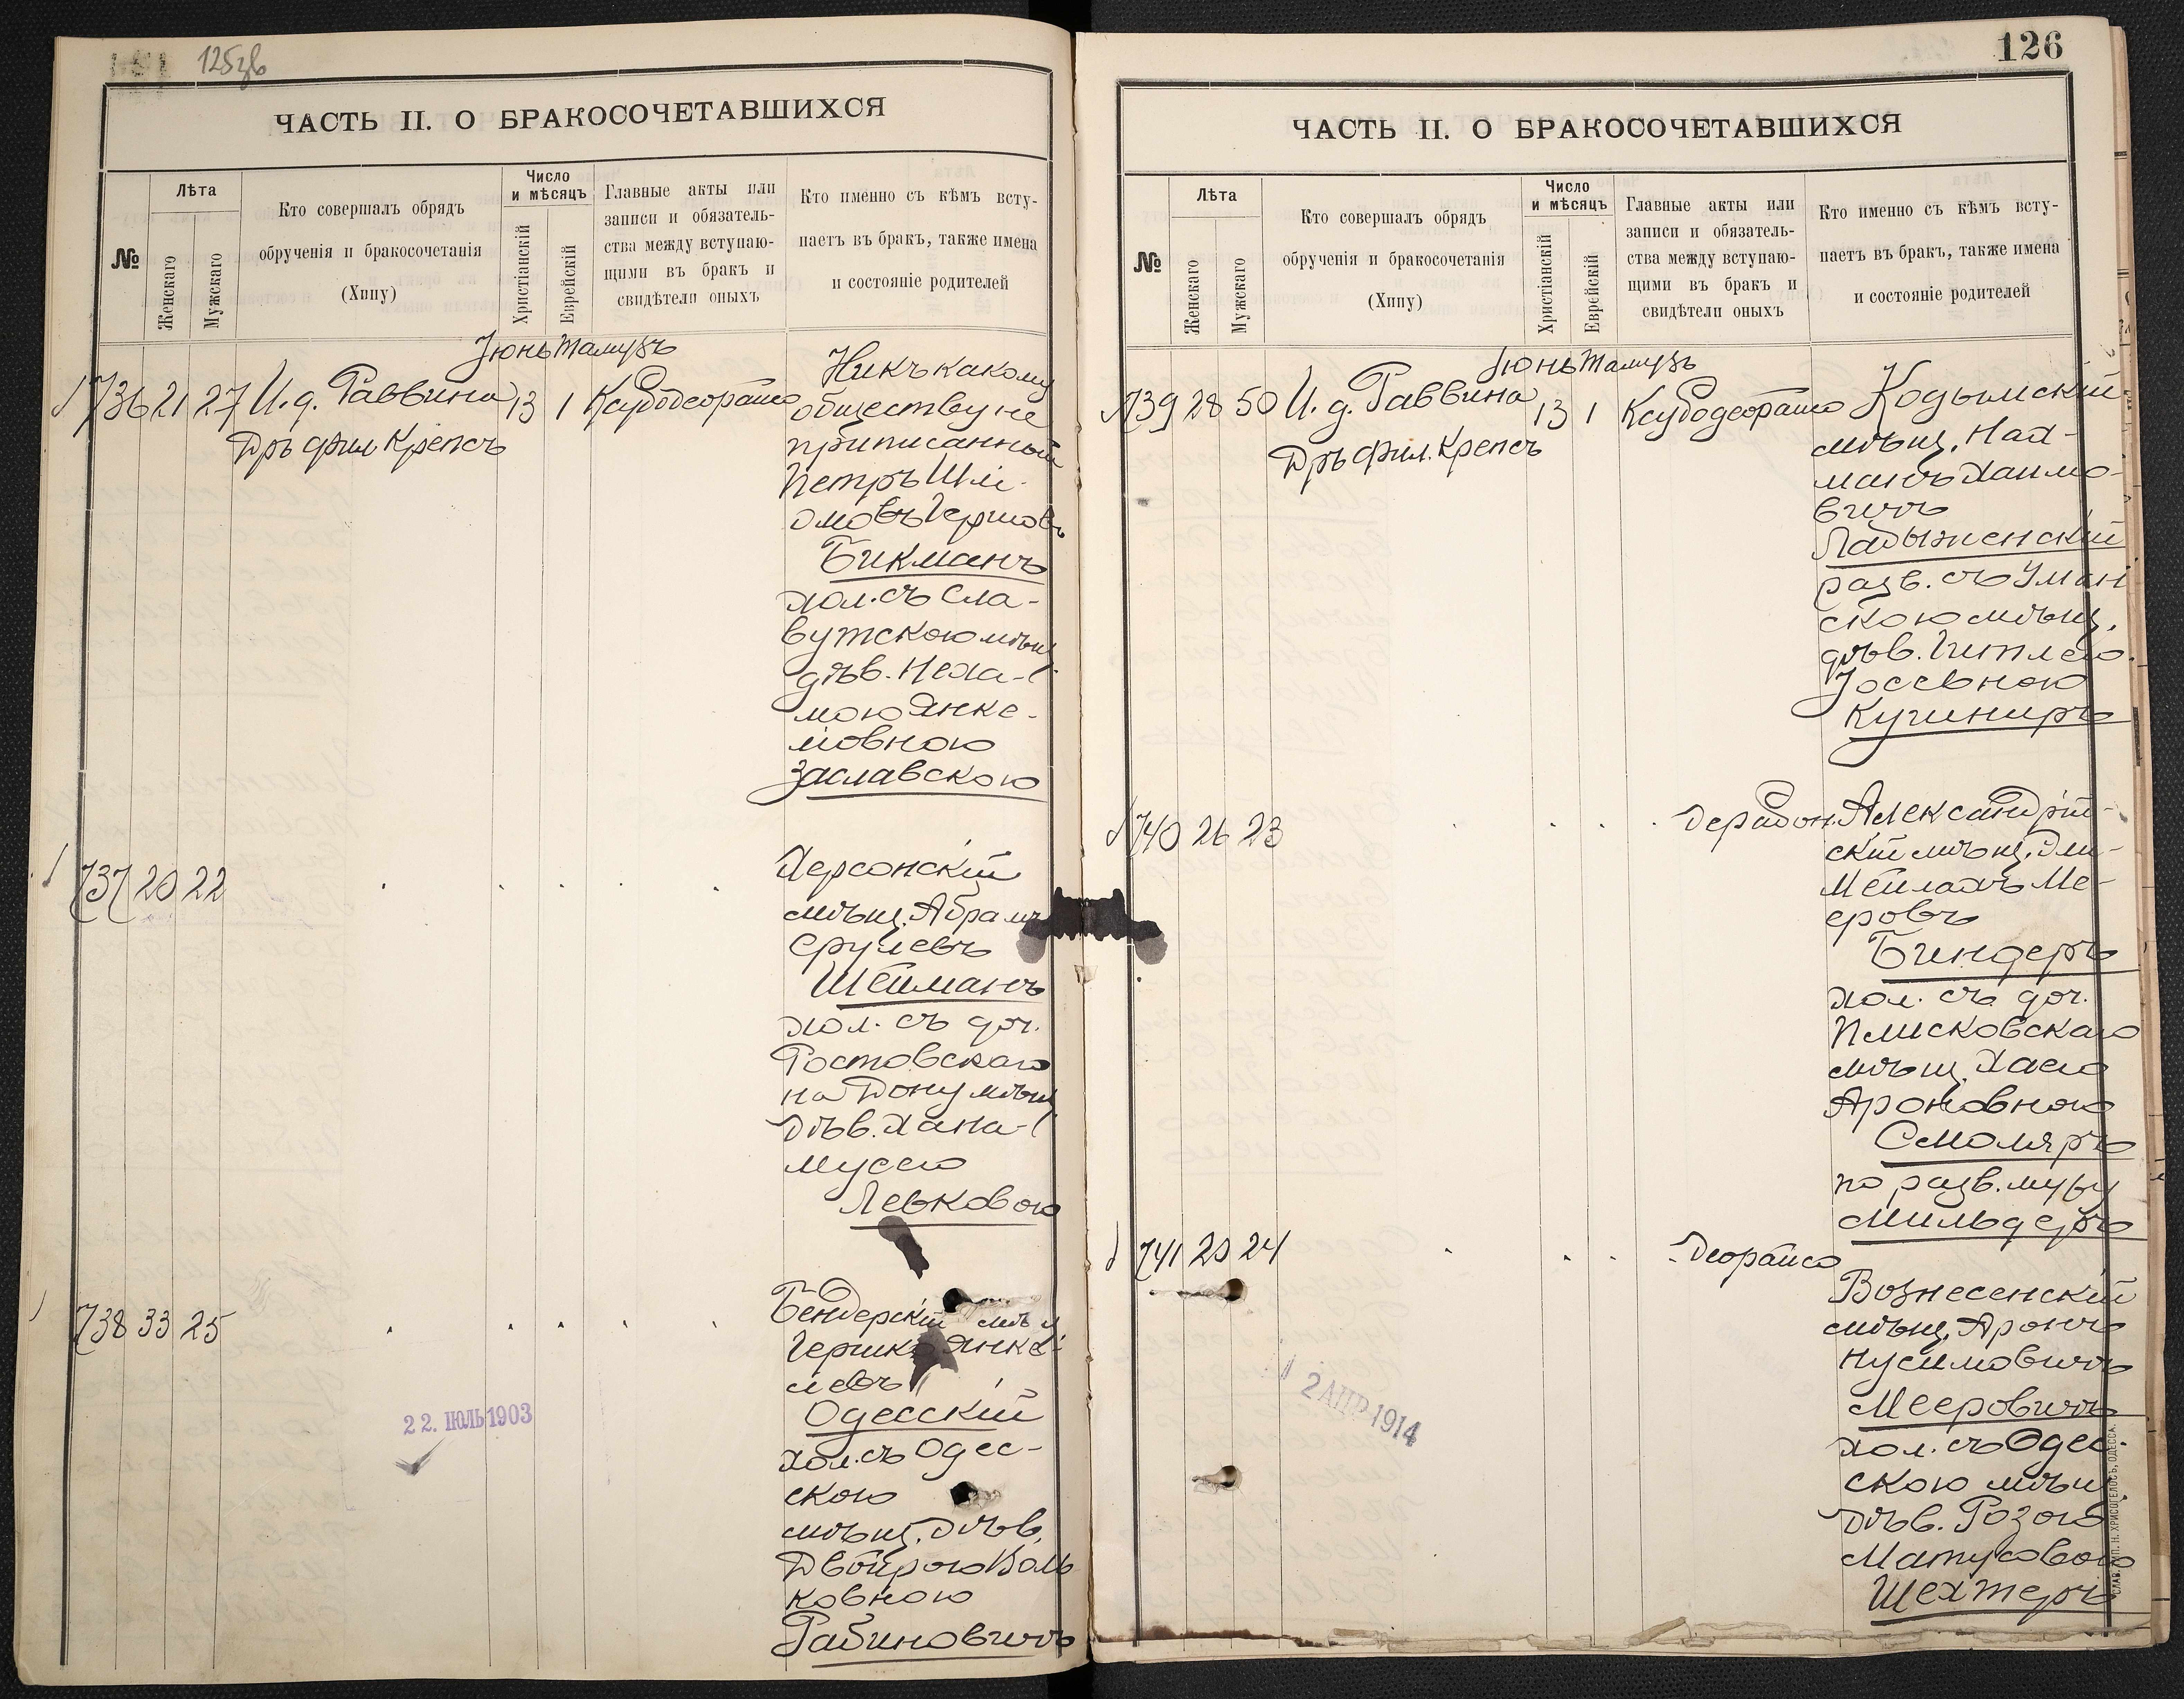 125зв
ЧАСТЬ II. О БРАКОСОЧЕТАВШИХСЯ
№
Лѣта
Женскаго
Мужскаго
Кто совершалъ обрядъ
обрученія и бракосочетанія
(Хипу)
Число
и мѣсяцъ
Христіанскій
Еврейскій
Главные акты или
записи и обязатель-
ства между вступаю-
щими въ бракъ и
свидѣтели оныхъ
Кто именно съ кѣмъ всту-
паетъ въ бракъ, также имена
и состояніе родителей
Іюнь Тамузъ
736 21 27 И. д. Раввина 13 1 Ксубодеорайсо
Дръ фил Крепсъ
Никъ какому
обществу не
приписанный
Петръ Шлі-
омовъ Гершовъ
Бикманъ
хол. съ Сла-
вутскою мѣщ.
дѣв. Неха-
мою Янке-
лювною
Заславскою
737 20 22
Херсонскій
мѣщ. Абрамъ
Срулевъ
Шейманъ
хол. съ доч.
Ростовскаго
на Дону мѣщ.
дѣв. Хана-
Муссею
Левковою
738 33 25
Бендерскій мѣщ
Гершко Янке-
левъ
Одесскій
хол. съ Одес-
скою
мѣщ. дѣв.
Двойрою Воль
ковною
Рабиновичъ
22. ІЮЛЬ 1903
126
ЧАСТЬ II. О БРАКОСОЧЕТАВШИХСЯ
№
Лѣта
Женскаго
Мужскаго
Кто совершалъ обрядъ
обрученія и бракосочетанія
(Хипу)
Число
и мѣсяцъ
Христіанскій
Еврейскій
Главные акты или
записи и обязатель-
ства между вступаю-
щими въ бракъ и
свидѣтели оныхъ
Кто именно съ кѣмъ всту-
паетъ въ бракъ, также имена
и состояніе родителей
Іюнь Тамузъ
739 28 50 И. д. Раввина 13 1 Ксубодеорайсо
Дръ фил. Крепсъ
Кодымскій
мѣщ. Нах-
манъ Хаимо-
вичъ
Ладыженскій
разв. съ Уман
скою мѣщ.
дѣв. Гитлею
Іосевною
Кушниръ
740 26 23 дерабон.
Александрій-
скій мѣщ. Эли-
Мейлахъ Ме-
еровъ
Биндеръ
хол. съ доч.
Плисковскаго
мѣщ. Хаею
Ароновною
Смоляръ
по разв. мужу
Мильдеръ
741 20 24 деорайсо
Вознесенскій
мѣщ. Аронъ
Нусимовичъ
Мееровичъ
хол. съ Одес-
скою мѣщ.
дѣв. Розою
Матусовою
Шехтеръ
2 АПР 1914
СЛАВ. ТИП. Н. ХРИСОГЕЛОСЪ, ОДЕССА.